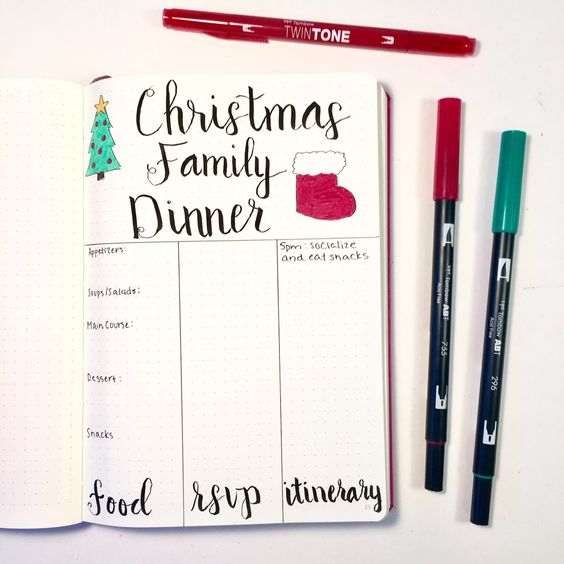 Tombow
TWINTONE
Christmas
Family
Dinner
Appetizers:
Soups/Salads:
Main Course:
Dessert:
Snacks
food
rsvp
5pm: socialize
and eat snacks
itinerary
Tombow ABT
Acid Free
755
Tombow ABT
Acid Free
296